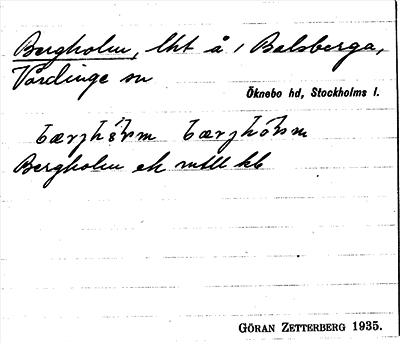 Bergholm, lht å 1 Balsberga,
Vårdinge sn
Öknebo hd, Stockholms l.
bærjhȯ́lm bærjhòlm
Bergholm ek mtll kb
GÖRAN ZETTERBERG 1935.